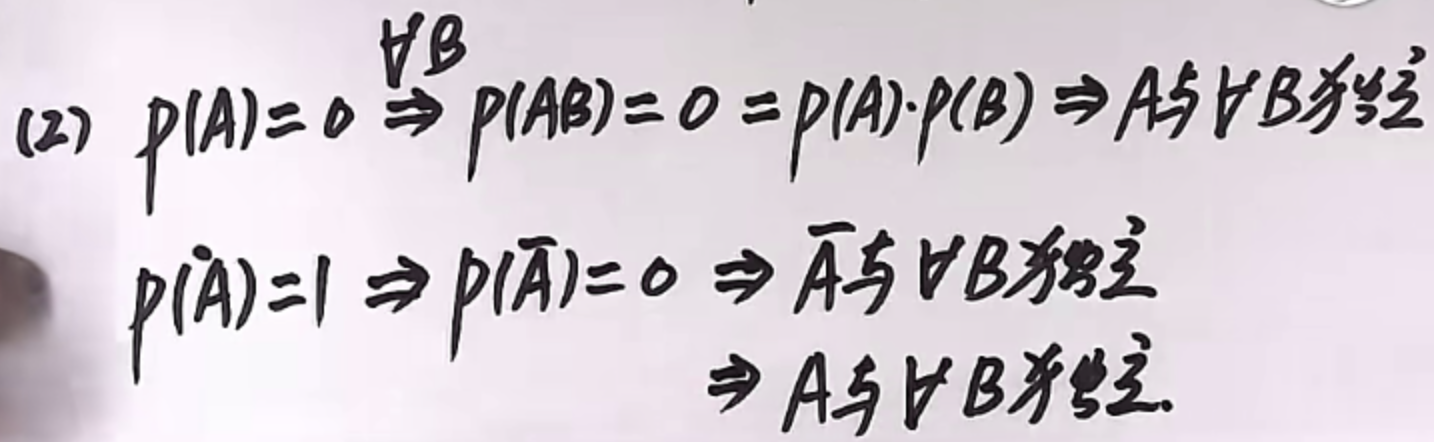 ∀B
(2) P(A)=0 ⇒ P(AB)=0=P(A)·P(B) ⇒ A与∀B独立
P(A)=1 ⇒ P(Ā)=0 ⇒ Ā与∀B独立
⇒ A与∀B独立.